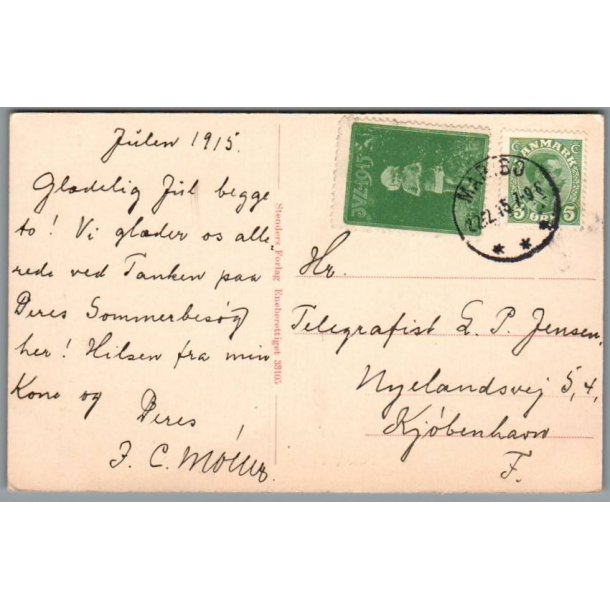 Julen 1915.
Glædelig Jul begge
to! Vi glæder os alle
rede ved Tanken paa
Deres Sommerbesøg
her! Hilsen fra min
Kone og
Deres
J. C. Möller
Stenders Forlag Eneberettiget 33105
JUL 1915
DANMARK
5 ØRE 5
MARIBO
Hr.
Telegrafist L. P. Jensen,
Nyelandsvej 5, 4,
Kjøbenhavn
F.